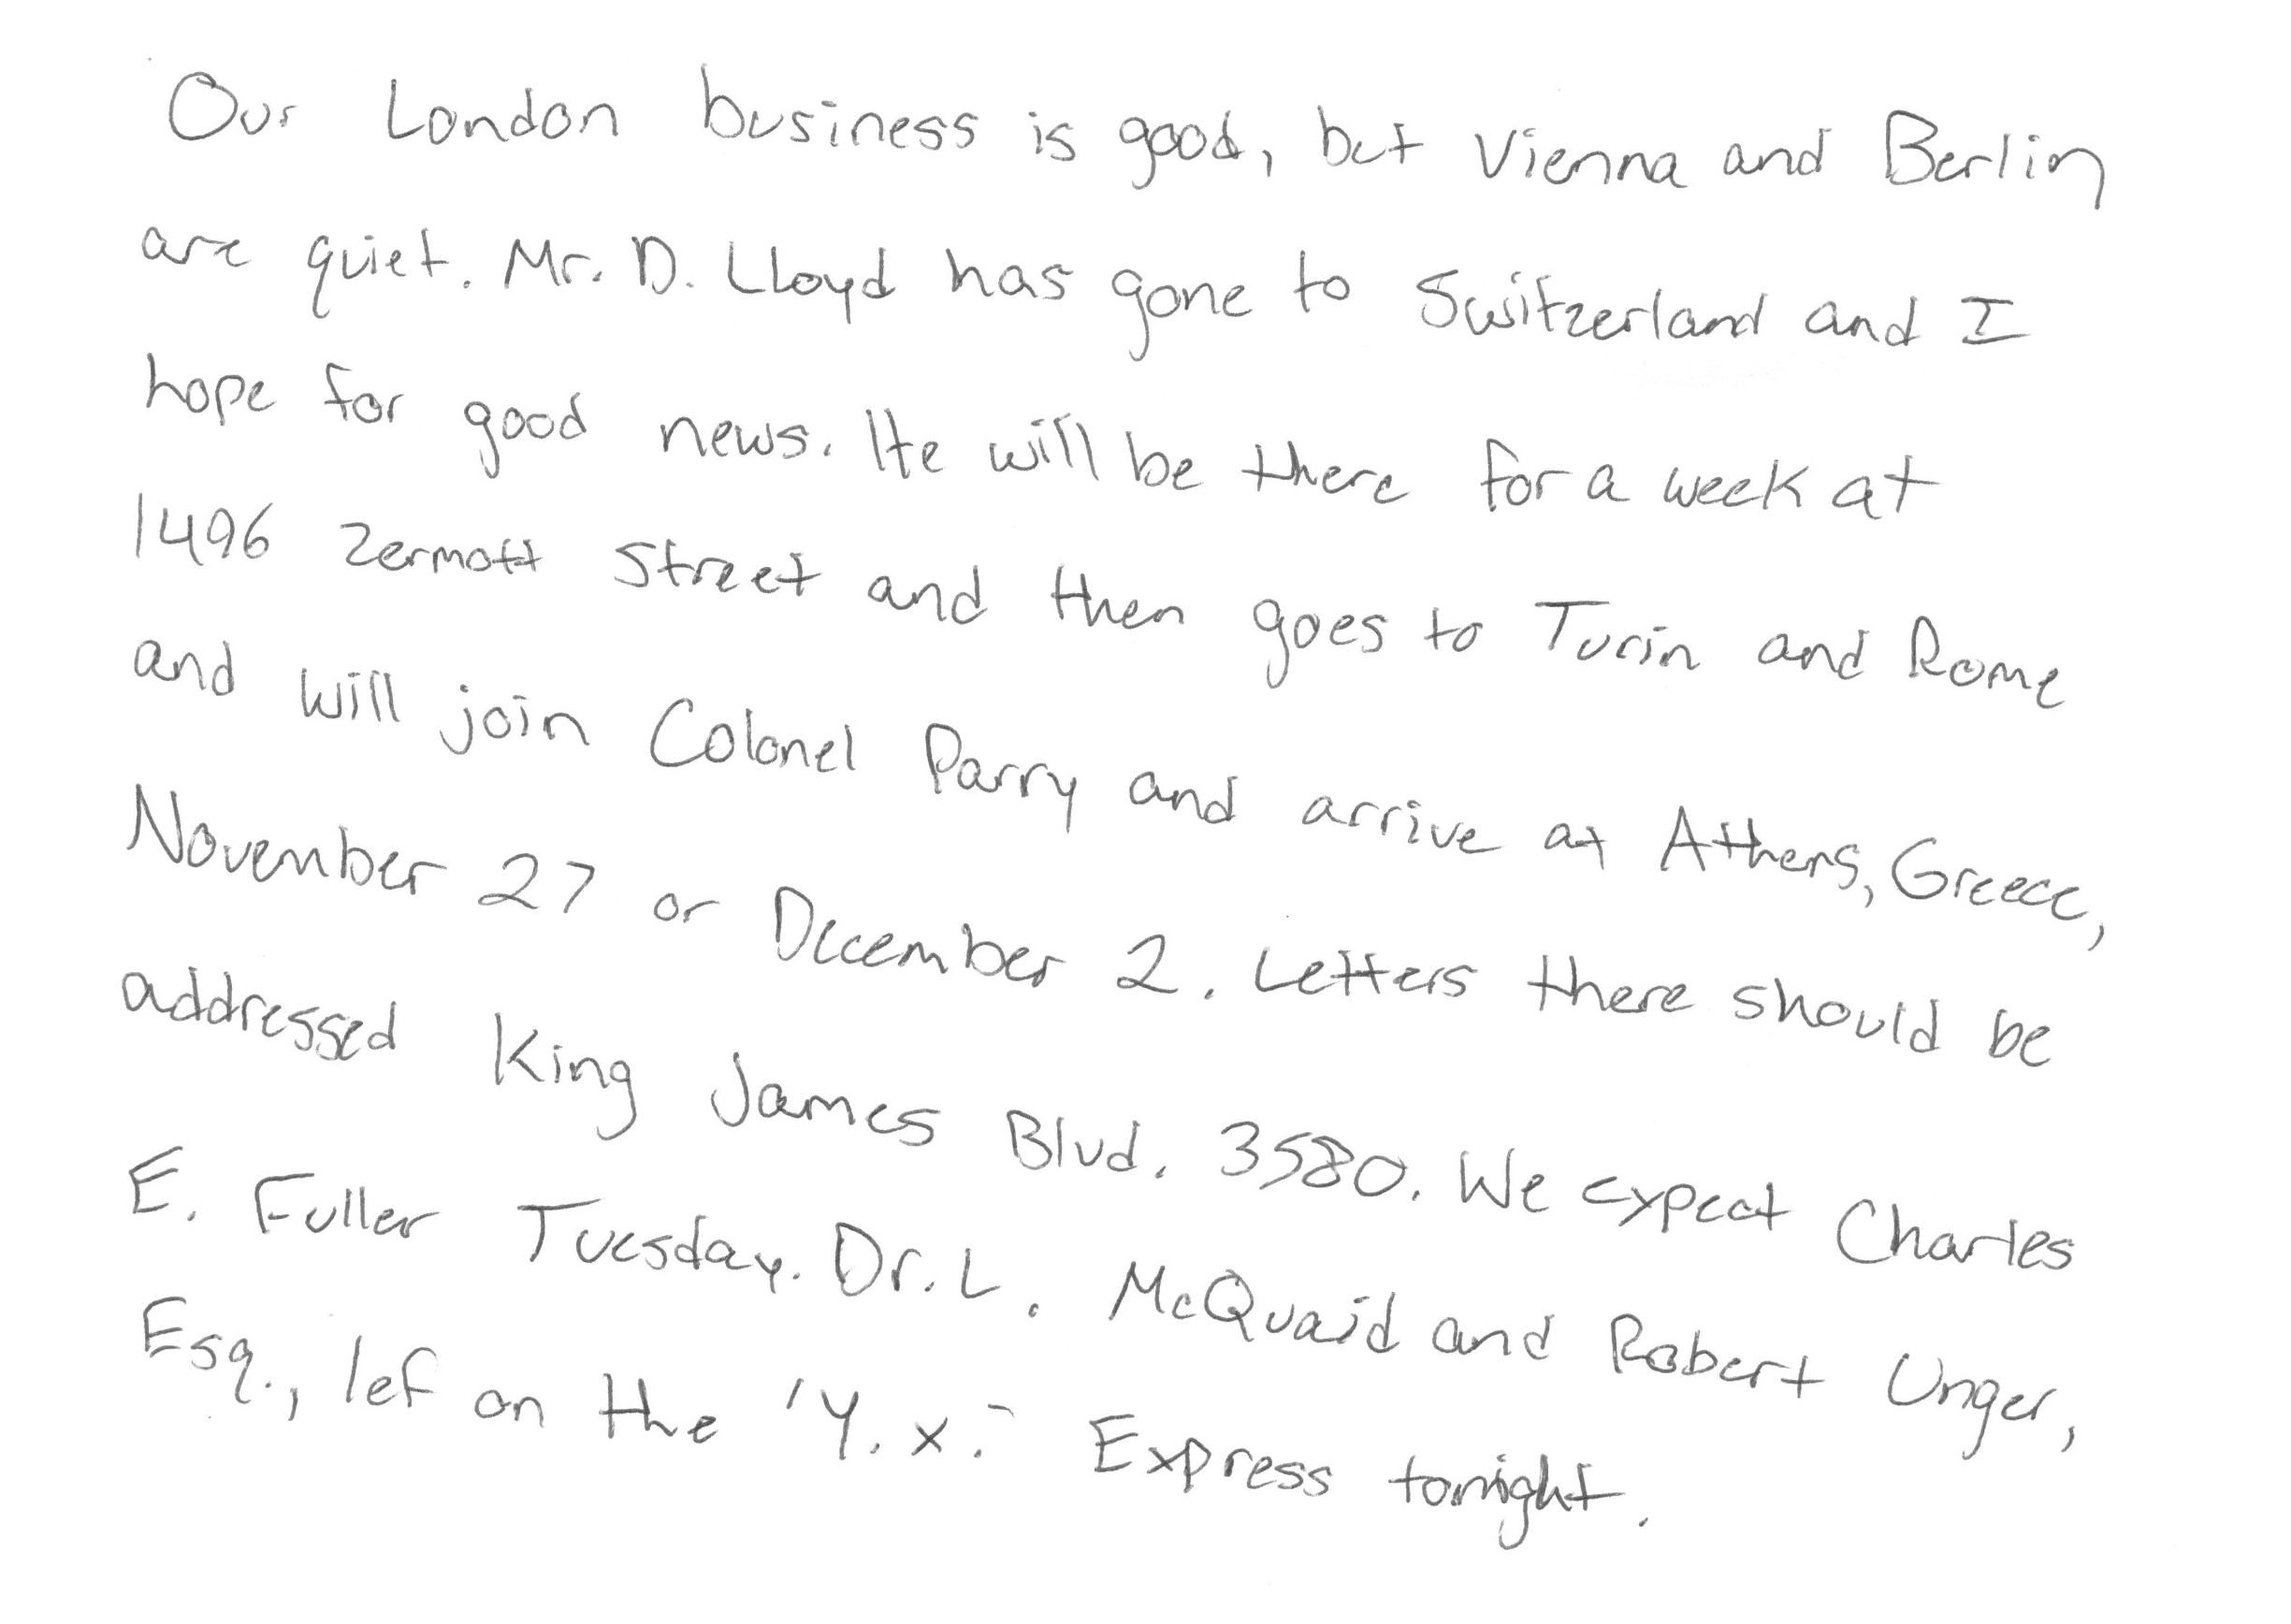 Our London business is good, but Vienna and Berlin
are quiet. Mr. D. Lloyd has gone to Switzerland and I
hope for good news. He will be there for a week at
1496 Zermott Street and then goes to Turin and Rome
and will join Colonel Parry and arrive at Athens, Greece,
November 27 or December 2. Letters there should be
addressed King James Blvd. 3580. We expect Charles
E. Fuller Tuesday. Dr. L. McQuaid and Robert Unger,
Esq., lef on the 'Y. X.' Express tonight.